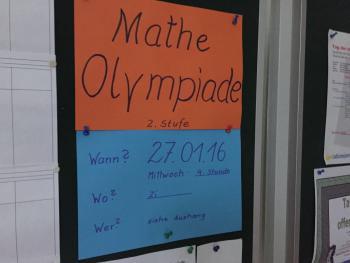 Mathe
Olympiade
2. Stufe
Wann? 27.01.16
Mittwoch 4. Stunde
Wo?
Wer? siehe Aushang